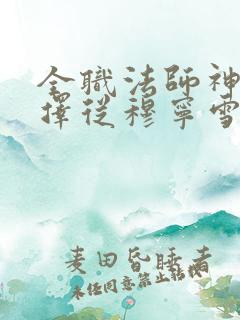 全職法師神
擇從穆寧雪
麦田昏睡者
未經同意禁止轉載